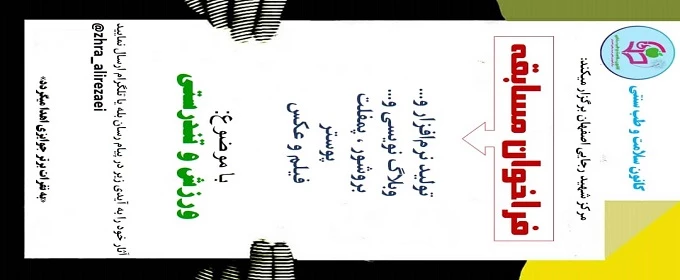 کانون سلامت و طب سنتی
مرکز شهید رجایی اصفهان برگزار میکند:
فراخوان مسابقه
تولید نرم‌افزار و...
وبلاگ نویسی و...
بروشور ، پمفلت
پوستر
فیلم و عکس
با موضوع:
ورزش و تندرستی
آثار خود را به آیدی زیر در پیام رسان بله یا تلگرام ارسال نمایید
@zhra_alirezaei
«به نفرات برتر جوایزی اهدا میگردد»